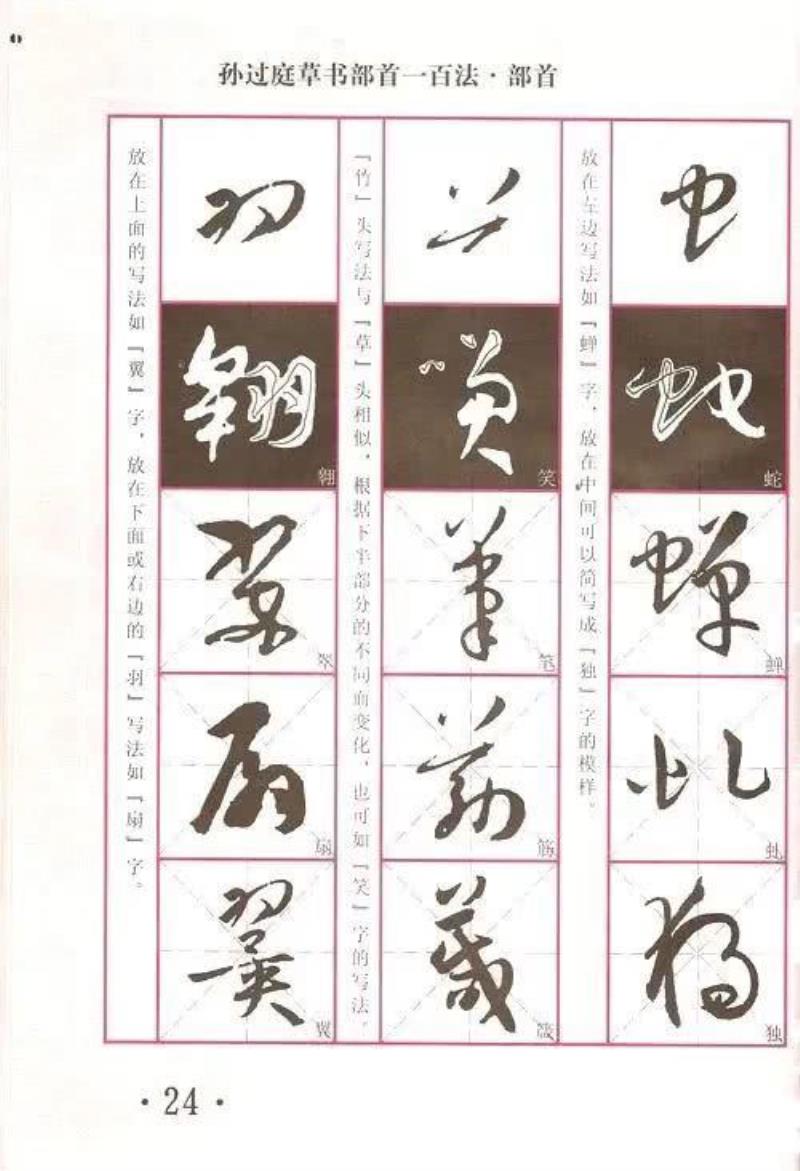 孙过庭草书部首一百法·部首
虫
蛇
蛇
蝉
蝉
虬
虬
独
独
放在左边写法如「蝉」字，放在中间可以简写成「独」字的模样。
笑
笑
笔
笔
筋
筋
箴
箴
「竹」头写法与「草」头相似，根据下半部分的不同而变化，也可如「笑」字的写法。
羽
翱
翱
翠
翠
扇
扇
翼
翼
放在上面的写法如「翼」字，放在下面或右边的「羽」写法如「扇」字。
·24·